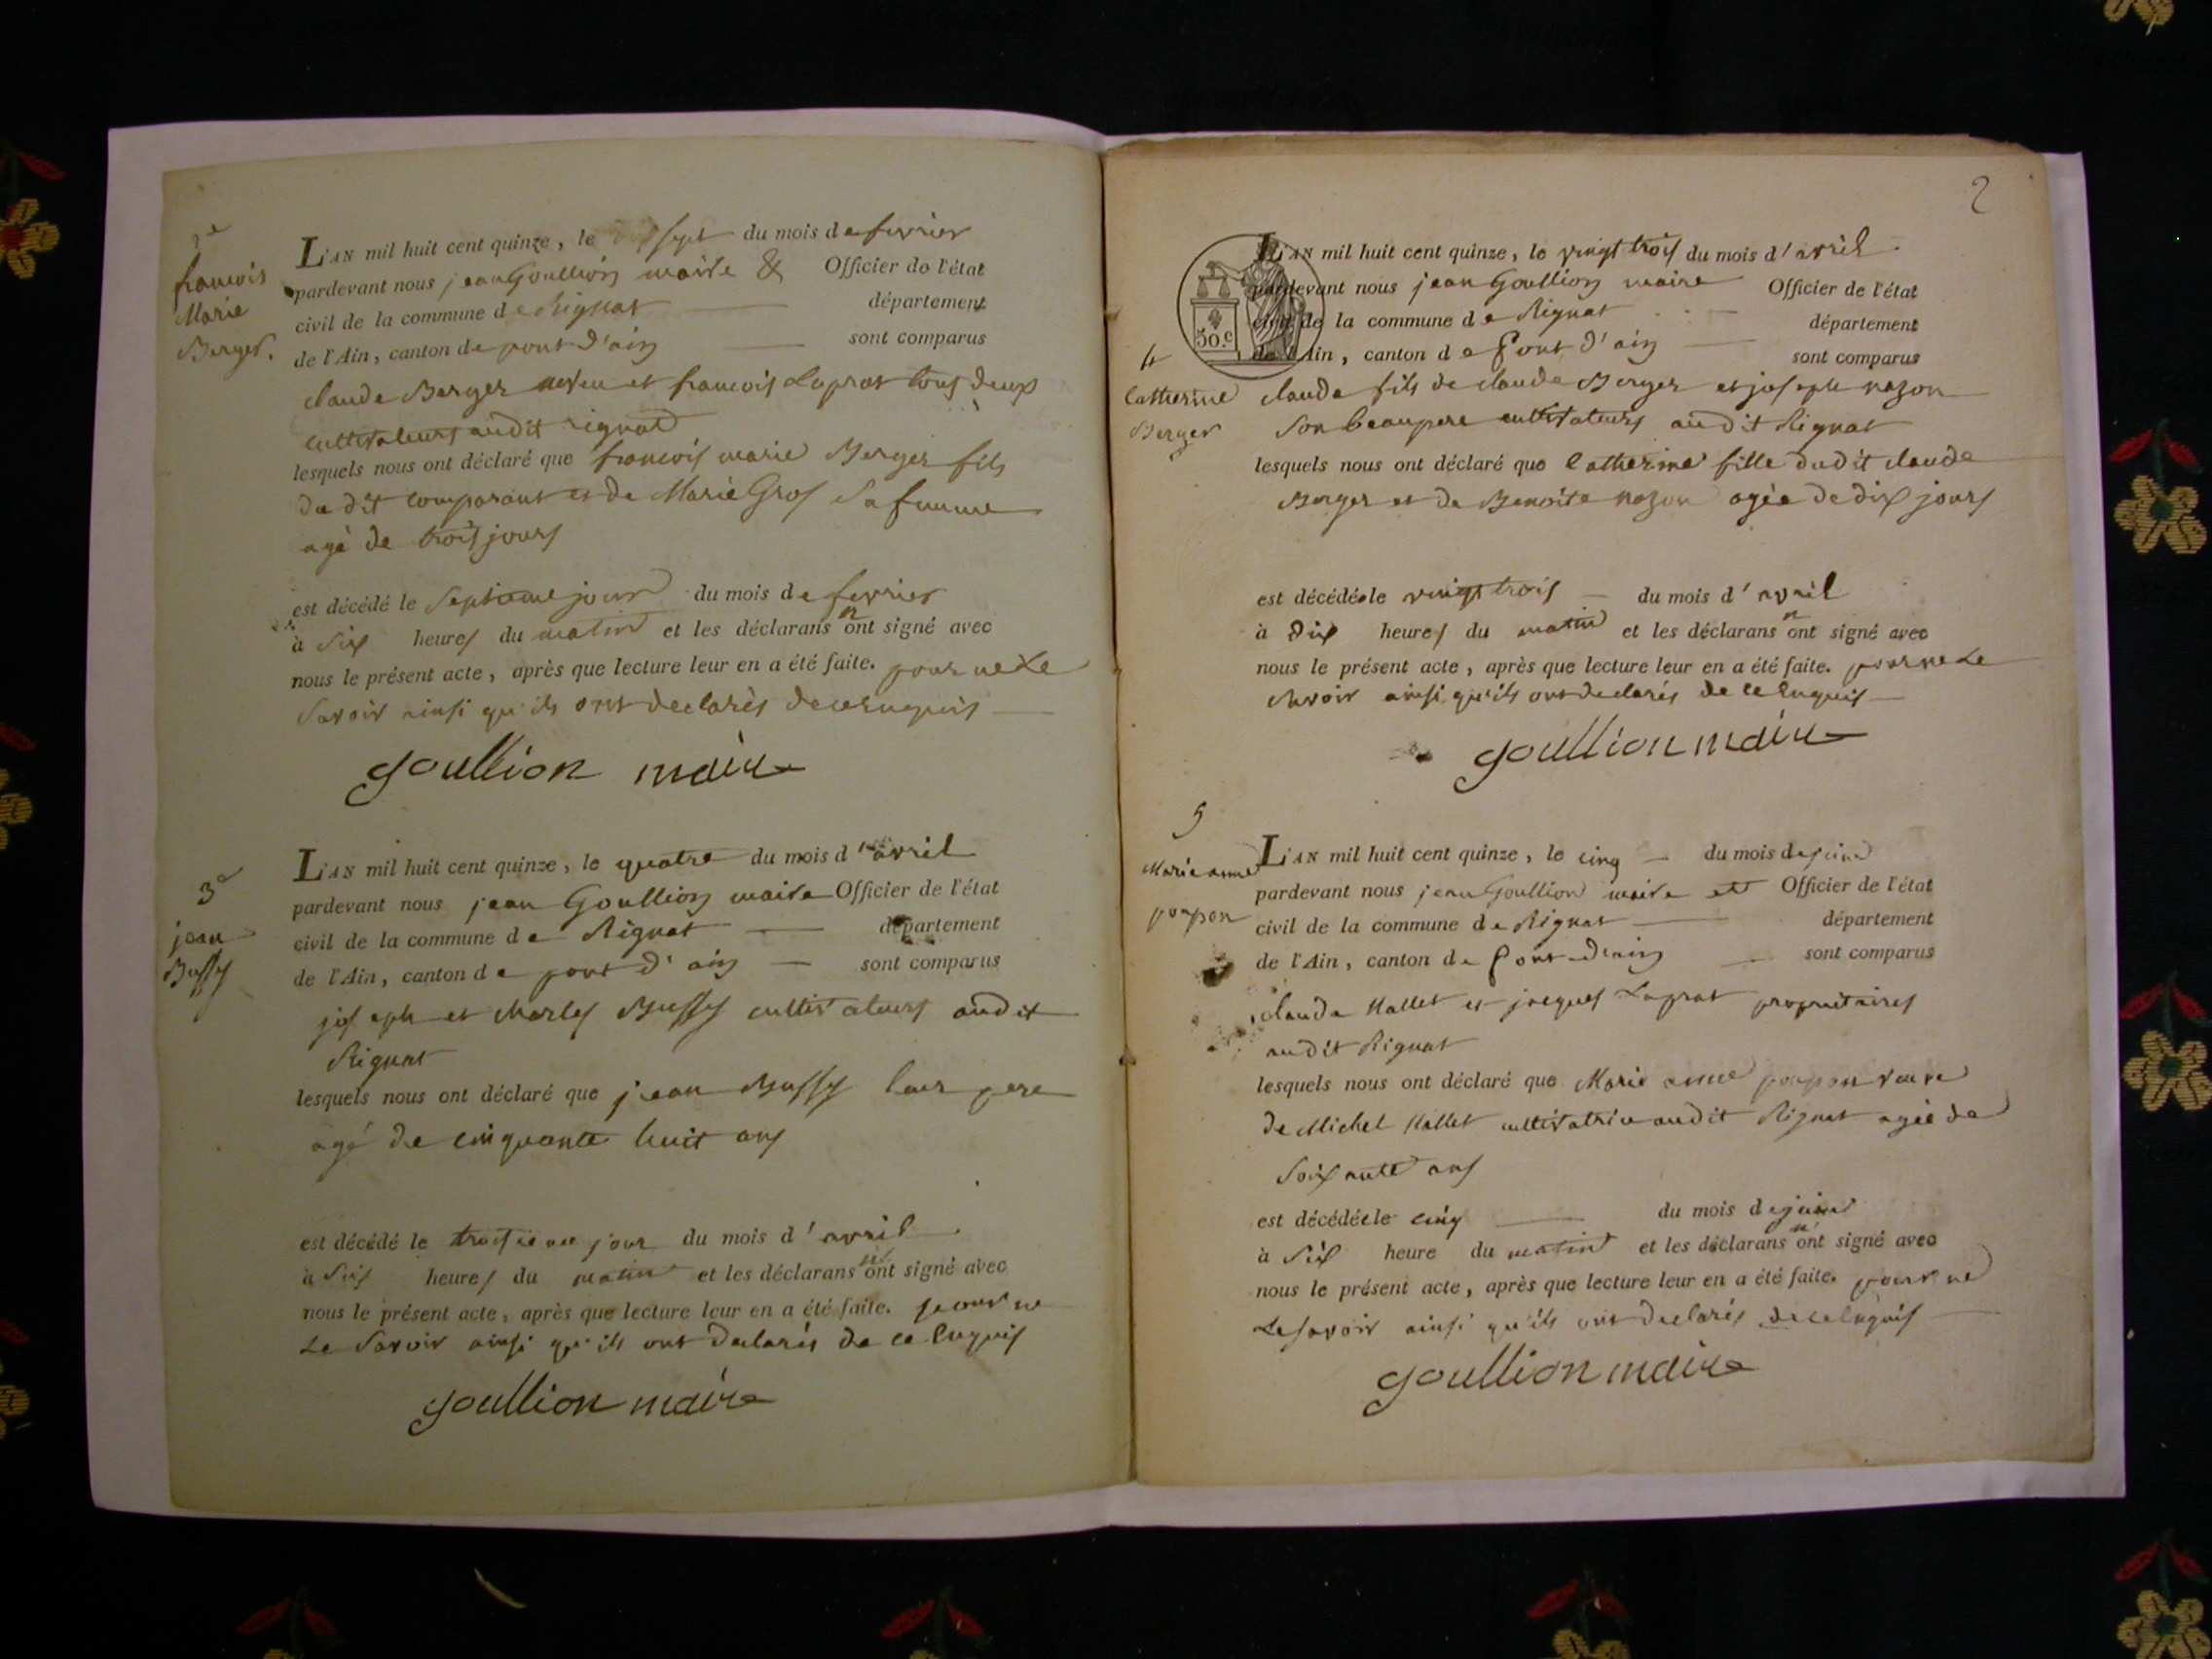 2e
francois
Marie
Berger.
L'AN mil huit cent quinze, le sept du mois de fevrier
pardevant nous jean Goullion maire & Officier de l'état
civil de la commune de Rignat département
de l'Ain, canton de pont d'ain sont comparus
claude Berger et francois Laprat tous deux
cultivateurs audit rignat
lesquels nous ont déclaré que francois marie Berger fils
du dit comparant et de Marie Gros sa femme
agé de trois jours
est décédé le septieme jour du mois de fevrier
à six heures du matin et les déclarans n'ont signé avec
nous le présent acte, après que lecture leur en a été faite. pour ne le
savoir ainsi qu'ils ont declarés de ce enquis
Goullion maire
3e
jean
Bussy
L'AN mil huit cent quinze, le quatre du mois d'avril
pardevant nous jean Goullion maire Officier de l'état
civil de la commune de Rignat département
de l'Ain, canton de pont d'ain sont comparus
joseph et charles Bussy cultivateurs audit
Rignat
lesquels nous ont déclaré que jean Bussy leur pere
agé de cinquante huit ans
est décédé le troisieme jour du mois d'avril
à six heures du matin et les déclarans n'ont signé avec
nous le présent acte, après que lecture leur en a été faite. pour ne
le savoir ainsi qu'ils ont declarés de ce enquis
Goullion maire
2
50.c
4
Catherine
Berger
L'AN mil huit cent quinze, le vingt trois du mois d'avril
pardevant nous jean Goullion maire Officier de l'état
civil de la commune de Rignat département
de l'Ain, canton de Pont d'ain sont comparus
claude fils de claude Berger et joseph nazon
son beaupere cultivateurs audit Rignat
lesquels nous ont déclaré que Catherine fille dudit claude
Berger et de Benoite nazon agée de dix jours
est décédée le vingt trois du mois d'avril
à dix heures du matin et les déclarans n'ont signé avec
nous le présent acte, après que lecture leur en a été faite. pour ne le
savoir ainsi qu'ils ont declarés de ce enquis
Goullion maire
5
Marie anne
poupon
L'AN mil huit cent quinze, le cinq du mois de juin
pardevant nous jean Goullion maire et Officier de l'état
civil de la commune de Rignat département
de l'Ain, canton de Pont d'ain sont comparus
claude Mallet et jacques Laprat proprietaires
audit Rignat
lesquels nous ont déclaré que Marie anne poupon veuve
de Michel Mallet cultivatrice audit Rignat agée de
soixante ans
est décédée le cinq du mois de juin
à six heure du matin et les déclarans n'ont signé avec
nous le présent acte, après que lecture leur en a été faite. pour ne
le savoir ainsi qu'ils ont declarés de ce enquis
Goullion maire